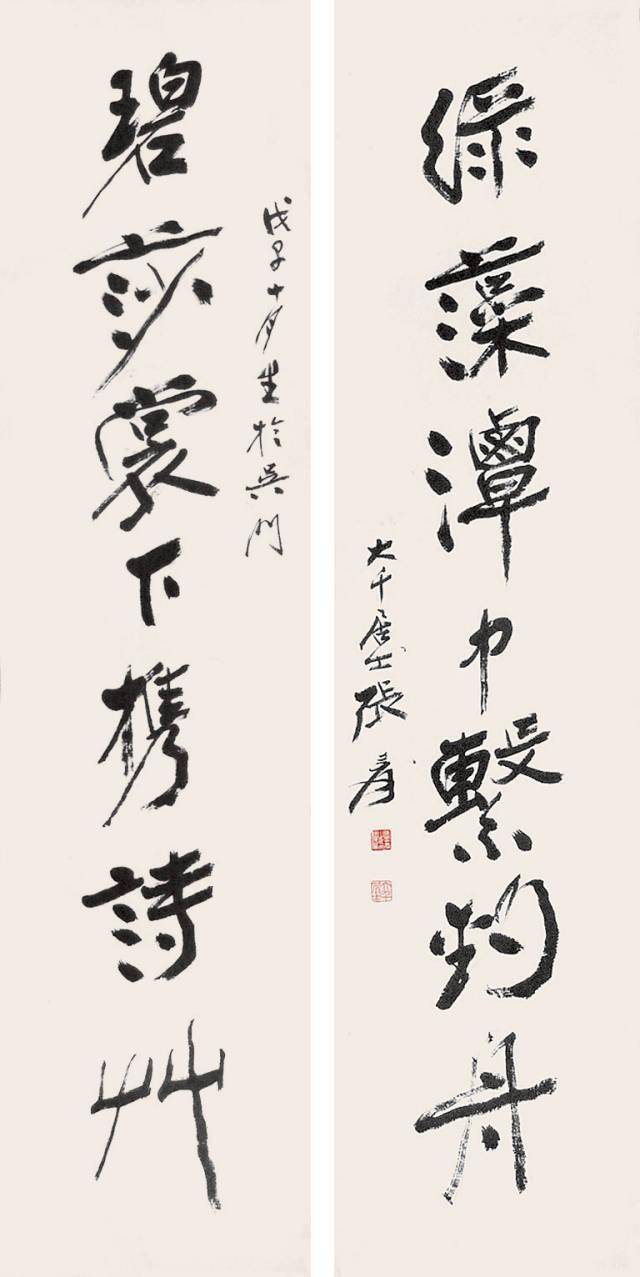 綠藻潭中繫釣舟
大千居士張爰
戊子十月於吳門
碧莎裳下携詩艸